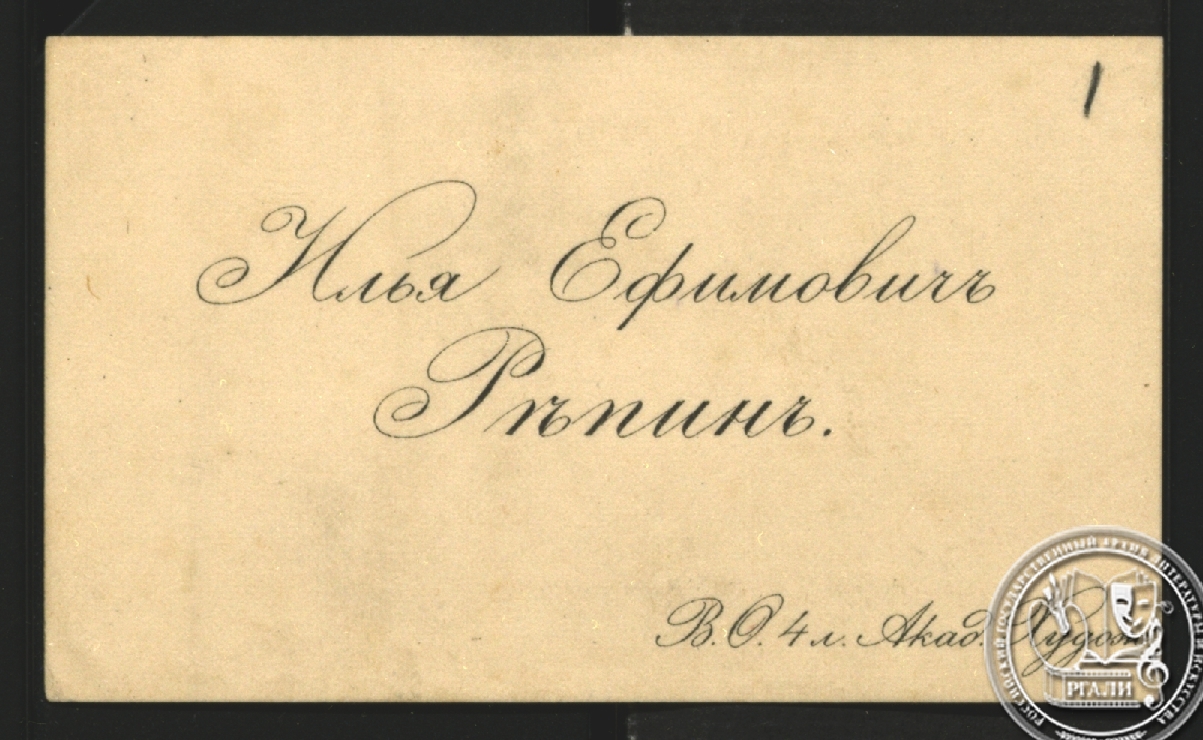 1
Илья Ефимовичъ
Рѣпинъ.
В.О. 4 л. Акад. Худож
РОССИЙСКИЙ ГОСУДАРСТВЕННЫЙ АРХИВ ЛИТЕРАТУРЫ И ИСКУССТВА
РГАЛИ